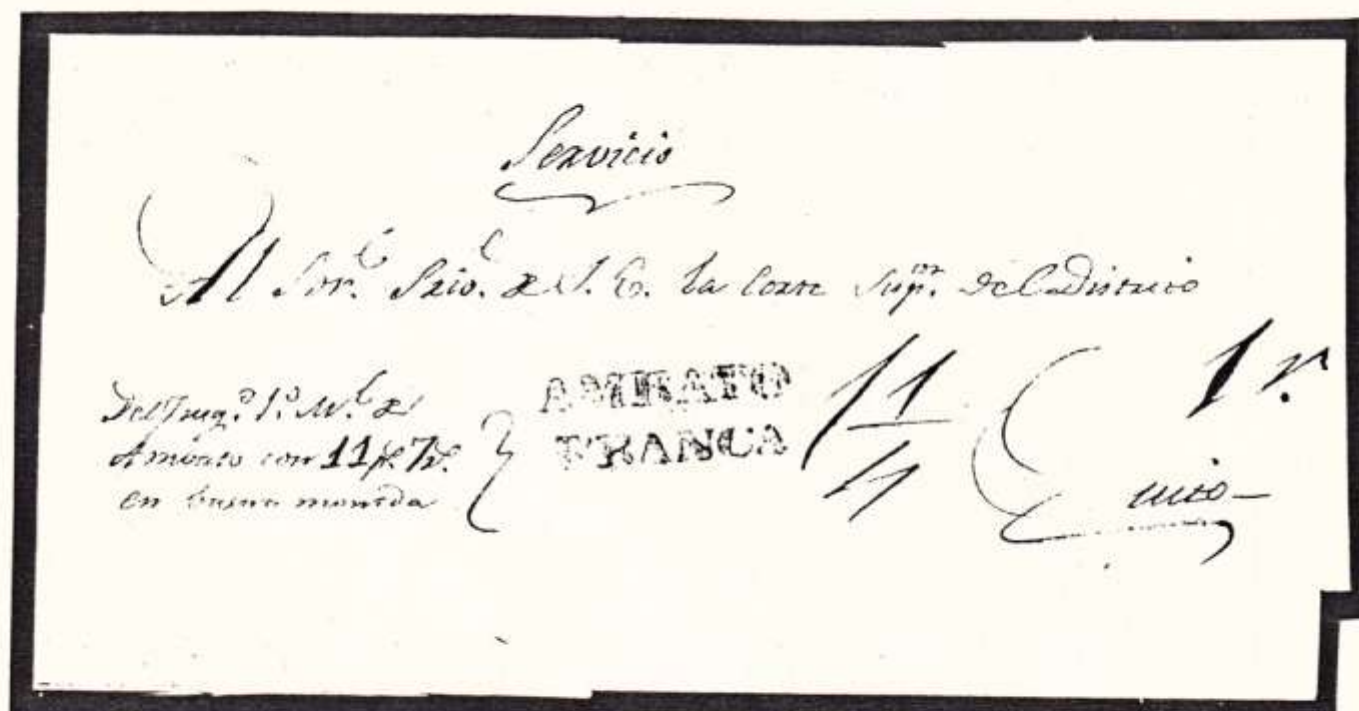 Servicio
Al Sor. Srio. de S. E. la Corte Supor. del Distrito
Del Juzgo. 1o. Ml. de
Ambato con 11 ps. 7 rs.
en buena moneda
AMBATO
FRANCA
11
4
1 r.
Quito